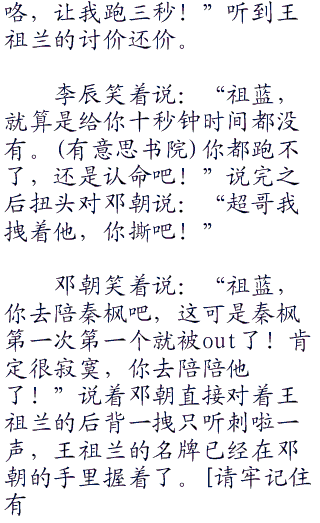 咯，让我跑三秒！”听到王
祖兰的讨价还价。
李辰笑着说：“祖蓝，
就算是给你十秒钟时间都没
有。(有意思书院)你都跑不
了，还是认命吧！”说完之
后扭头对邓朝说：“超哥我
拽着他，你撕吧！”
邓朝笑着说：“祖蓝，
你去陪秦枫吧，这可是秦枫
第一次第一个就被out了！肯
定很寂寞，你去陪陪他
了！”说着邓朝直接对着王
祖兰的后背一拽只听刺啦一
声，王祖兰的名牌已经在邓
朝的手里握着了。[请牢记住
有